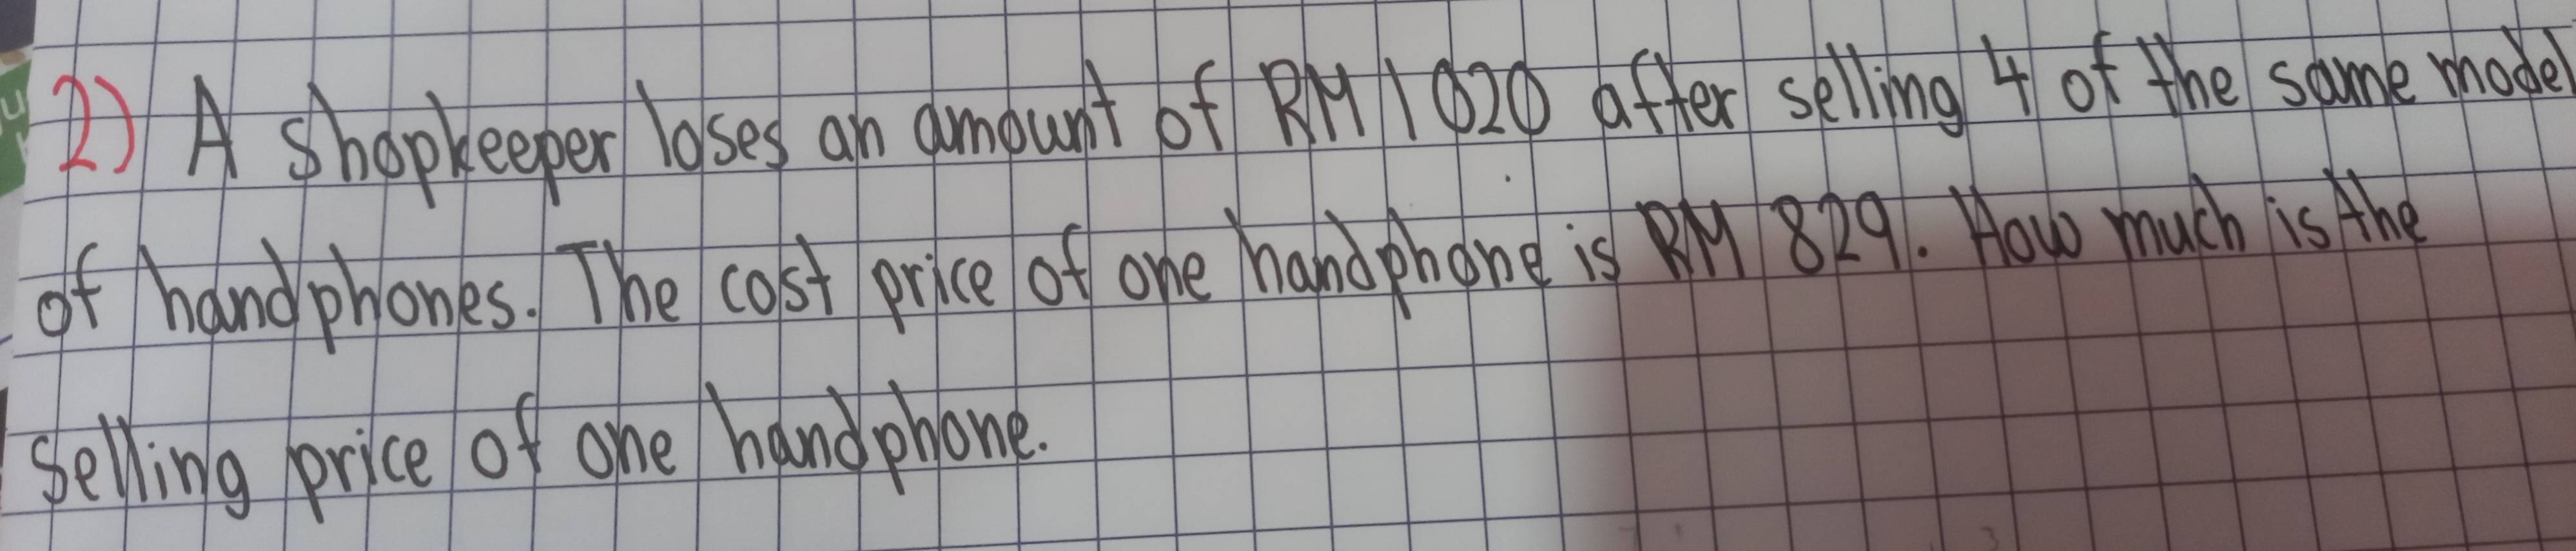 2) A shopkeeper loses an amount of RM 1 020 after selling 4 of the same model
of handphones. The cost price of one handphone is RM 829. How much is the
selling price of one handphone.